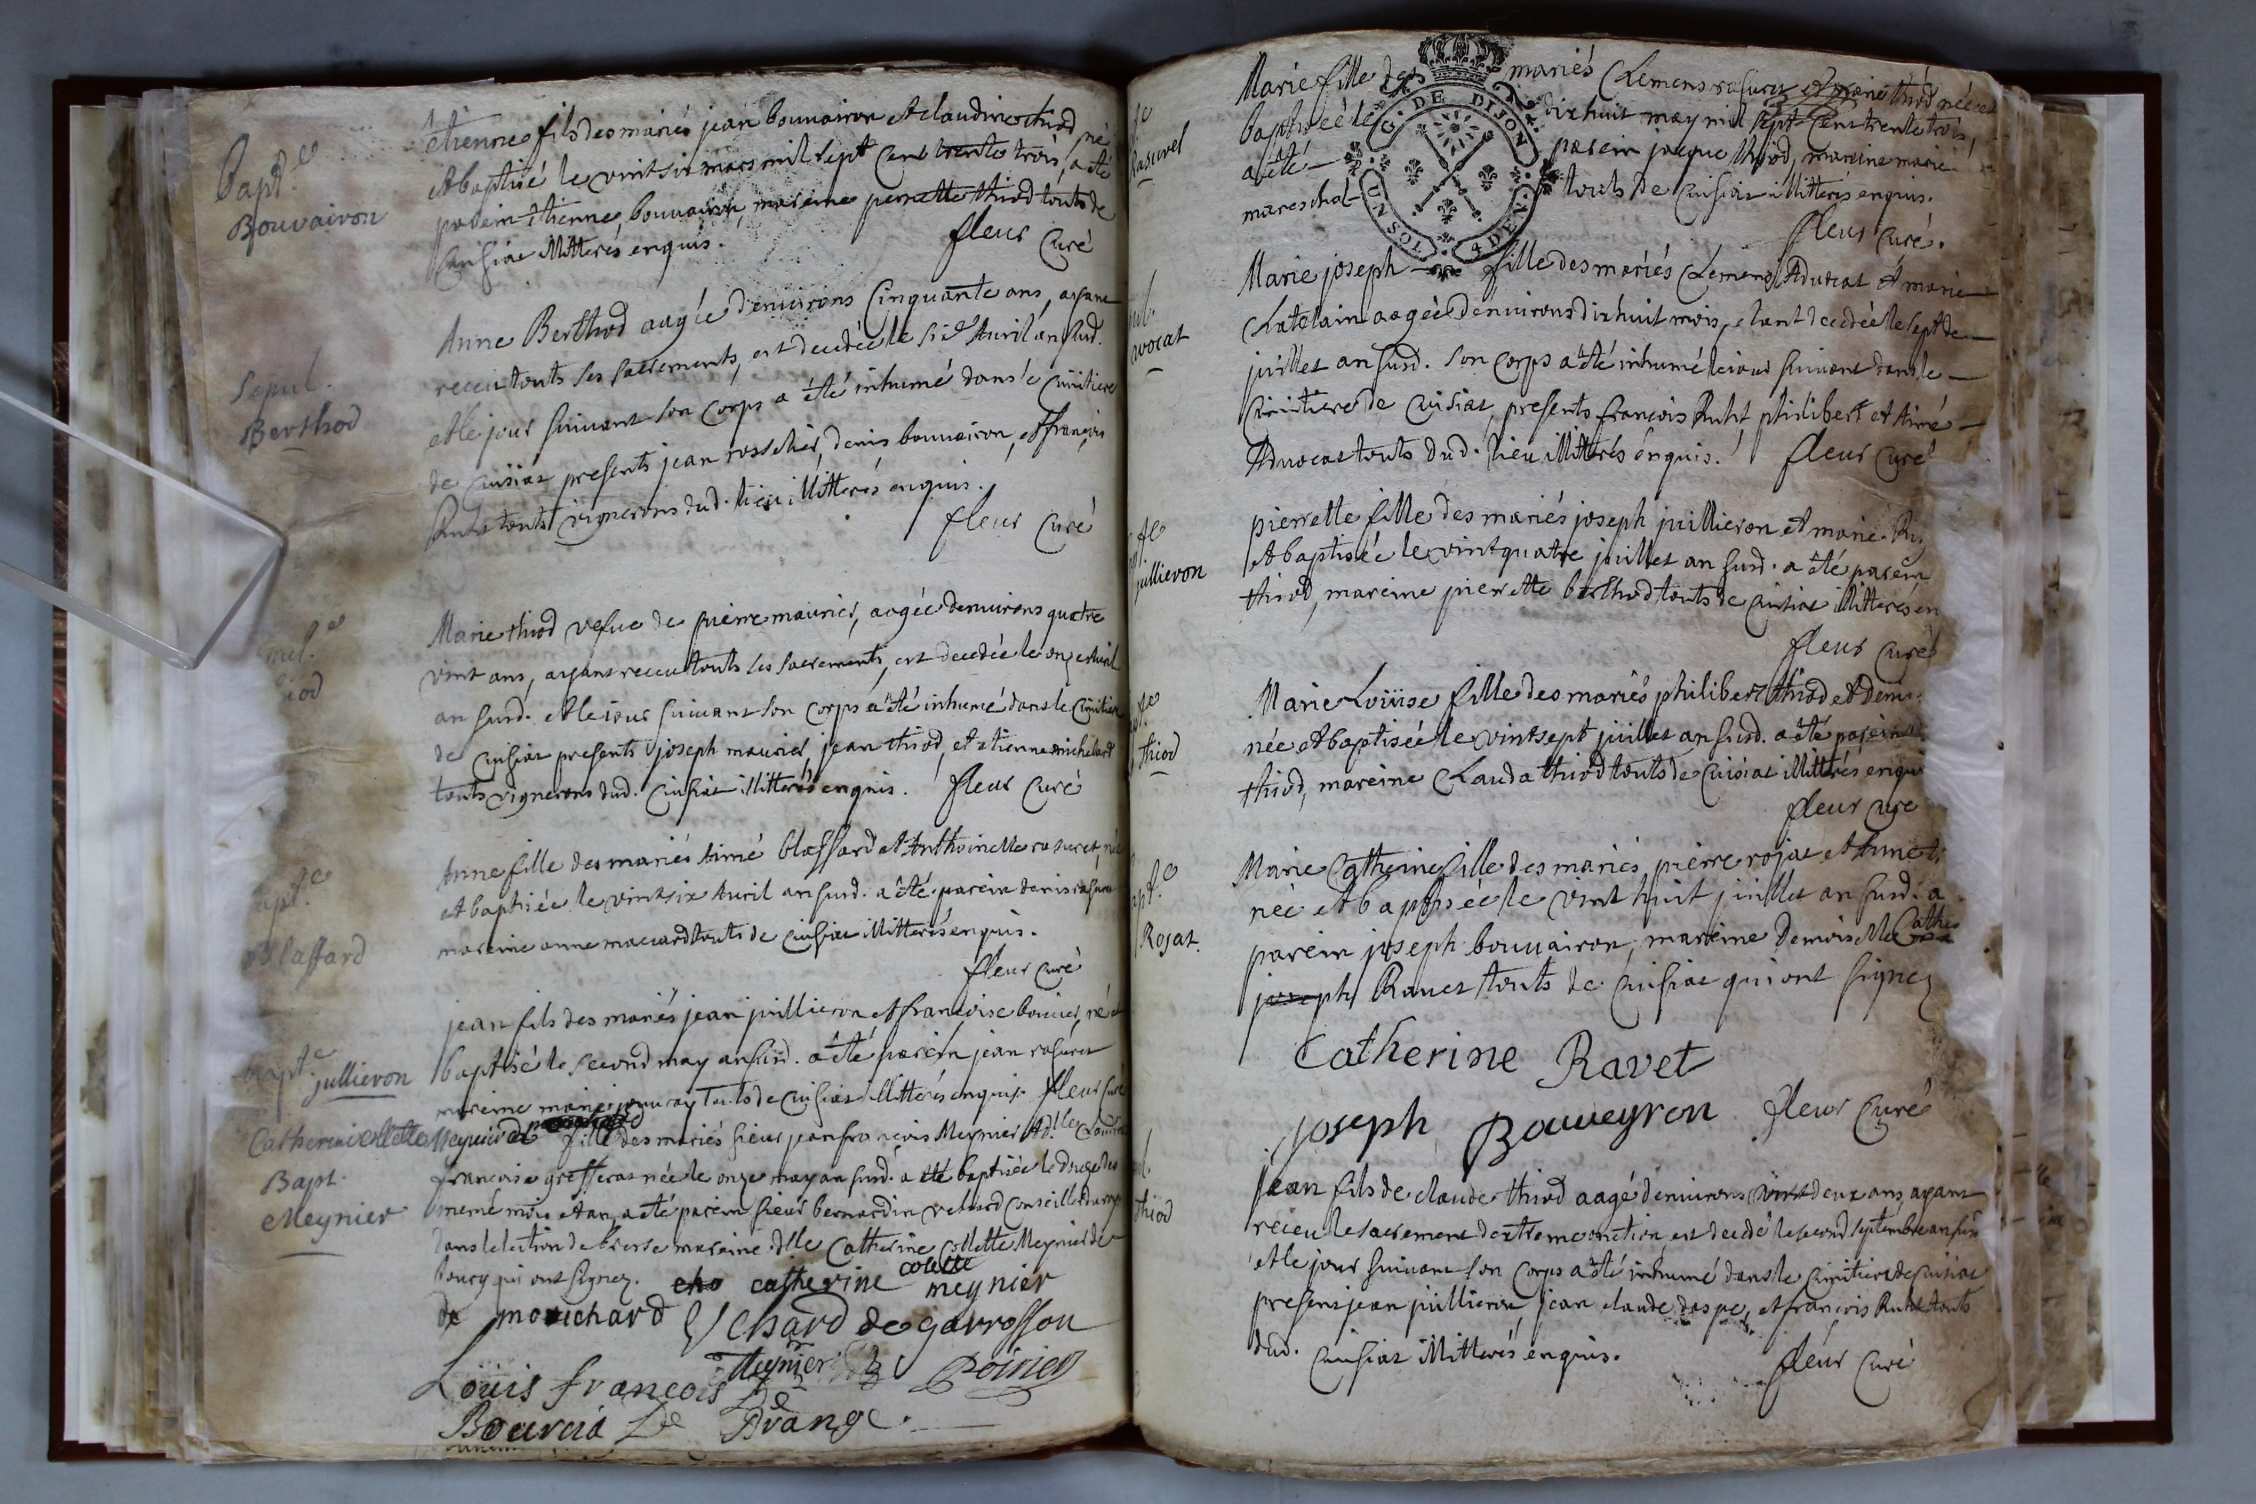 Bapt.e
Bouvairon
êtienne fils des mariés jean bouvairon et claudine thiod, né
et baptisé le vint six mars mil sept cent trente trois, a été
parein êtienne bouvairon, mareine pierrette thiod touts de
Cuisiat illitterés enquis.
fleur Curé
Sepul.
Berthod
Anne Berthod aagée d'environs Cinquante ans, ayant
receu touts ses sacrements, est decedée le six Avril an susd.
et le jour suivant son corps a été inhumé dans le Cimitiere
de Cuisiat presents jean rosselier, denis bouvairon, et françois
touts vignerons dud. lieu illitterés enquis.
fleur Curé
Marie thiod vefue de pierre maurier, aagée d'environs quatre
vint ans, ayant receu touts ses sacrements, est decedée le onze Avril
an susd. et le jour suivant son corps a été inhumé dans le Cimitiere
de Cuisiat presents joseph maurier, jean thiod, et êtienne michelard
touts vignerons dud. Cuisiat illitterés enquis. fleur Curé
Blaffard
Anne fille des mariés Aimé blaffard et Anthoinette rasuret, née
et baptisée le vint six Avril an susd. a été parein denis rasuret
mareine anne macard touts de Cuisiat illitterés enquis.
fleur Curé
bapt.e jullieron
jean fils des mariés jean jullieron et françoise bouier, né et
baptisé le second may an susd. a été parein jean rasuret
mareine marie touts de Cuisiat illitterés enquis. fleur Curé
Catherine Collette
Bapt.
Meynier
fille des mariés sieur jean françois Meynier et d.lle
françoise née le onze may an susd. a été baptisée le douze du
meme mois et an, a été parein sieur bernardin Conseiller du roy
dans l'election de bresse mareine d.lle Catherine Collette Meynier de
qui ont signez. catherine colette meynier
de monichard Chard de garrosson
Meynier Poirier
Loüis françois De
Bourcia De Drange.
Marie fille des mariés Clemens rasuret et marie thiod née et
baptisée le dix huit may mil sept cent trente trois,
a été parein jacque thiod, mareine marie
mareschal touts de Cuisiat illitterés enquis.
fleur Curé.
G. DE DIJON
UN SOL 4 DEN.
Marie joseph fille des mariés Clemens Advocat et marie
Chatelain aagée d'environs dix huit mois, etant decedée le sept de
juillet an susd. son corps a été inhumé le jour suivant dans le
Cimitiere de Cuisiat, presents françois philibert et Aimé
Advocat touts dud. lieu illitterés enquis. fleur Curé
jullieron
pierrette fille des mariés joseph juillieron et marie
et baptisée le vint quatre juillet an susd. a été parein
thiod, mareine pierrette berthod touts de Cuisiat illitterés en
fleur Curé
thiod
Marie Loüise fille des mariés philibert thiod et
née et baptisée le vint sept juillet an susd. a été parein
thiod, mareine Clauda thiod touts de Cuisiat illitterés enquis
fleur Curé
Rojat.
Marie Catherine fille des mariés pierre rojat et Anne
née et baptisée le vint huit juillet an susd. a
parein joseph bouvairon, mareine demoiselle Cathe
joseph Ravet touts de Cuisiat qui ont signez
Catherine Ravet
joseph Bouveyron fleur Curé
thiod
jean fils de claude thiod aagé d'environs vint deux ans ayant
receu le sacrement d'extreme onction, est decedé le second septembre an susd
et le jour suivant son corps a été inhumé dans le Cimitiere de Cuisiat
presens jean juillieron, jean claude et françois touts
dud. Cuisiat illitterés enquis.
fleur Curé